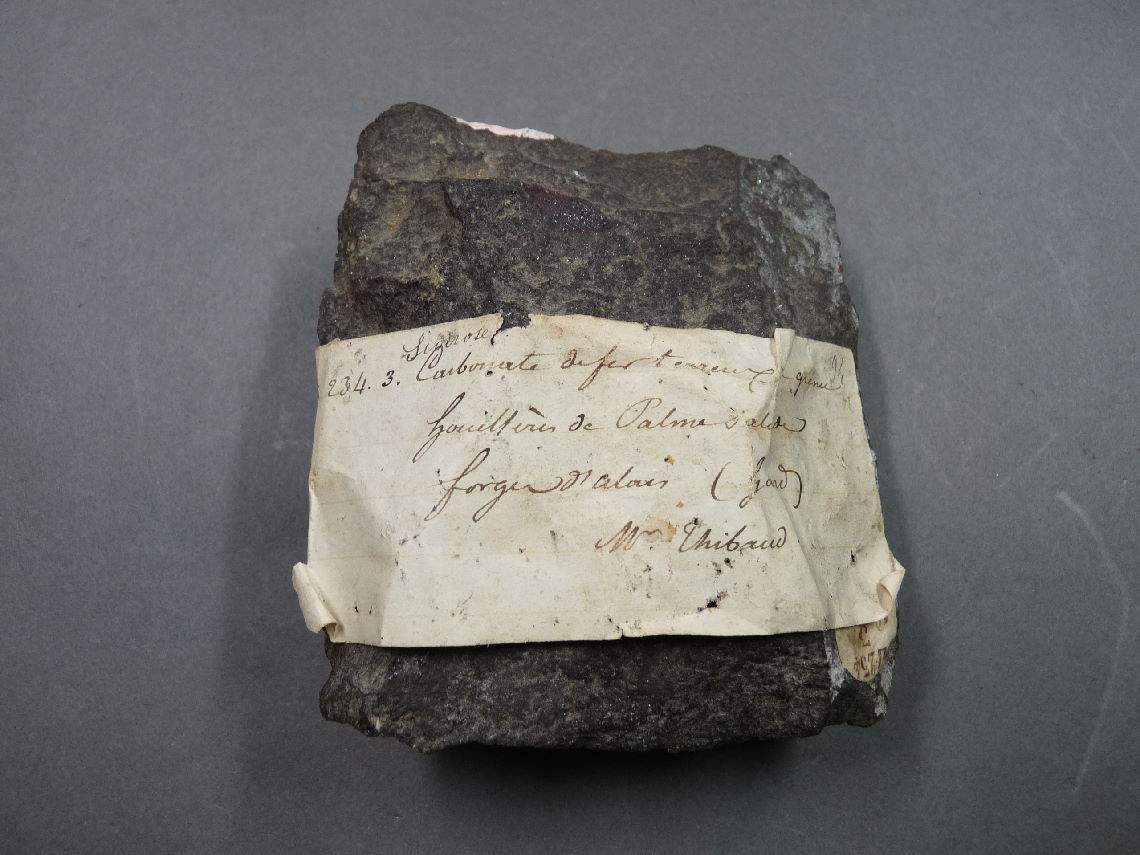 Siderose
234. 3. Carbonate de fer terreux
houillères de Palme Salade
forges d'alais (Gard)
Mr Thibaud